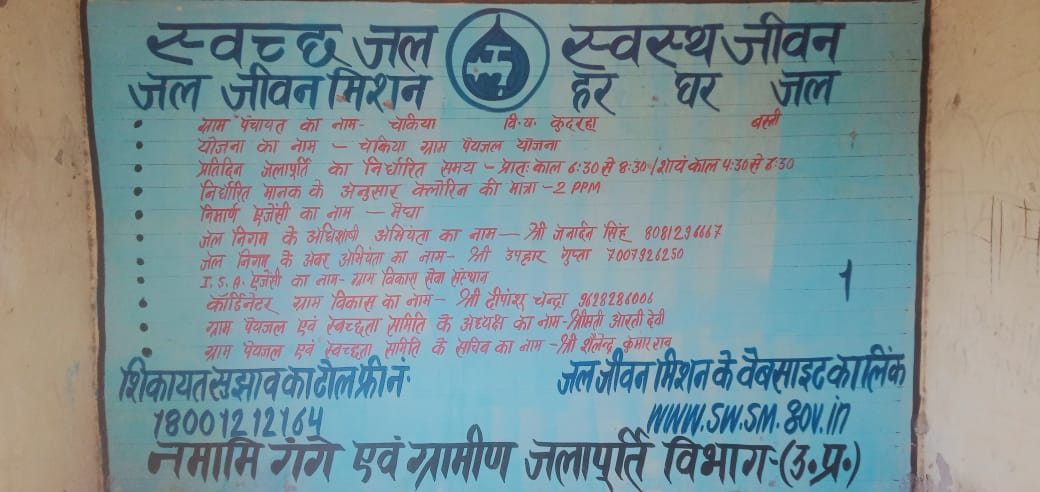 स्वच्छ जल स्वस्थ जीवन
जल जीवन मिशन हर घर जल
ग्राम पंचायत का नाम- चेकिया वि.ख. कुदरहा बस्ती
योजना का नाम - चेकिया ग्राम पेयजल योजना
प्रतिदिन जलापूर्ति का निर्धारित समय - प्रातः काल 6:30 से 8:30/शायं काल 4:30 से 6:30
निर्धारित मानक के अनुसार क्लोरिन की मात्रा -2 PPM
निमार्ण एजेंसी का नाम - मेघा
जल निगम के अधिशाषी अभियंता का नाम- श्री जनार्दन सिंह 8081236667
जल निगम के अवर अभियंता का नाम- श्री उपहार गुप्ता 7007926250
I.S.A. ऐजेंसी का नाम- ग्राम विकास सेवा संस्थान
कॉर्डिनेटर ग्राम विकास का नाम- श्री दीपांशु चन्द्रा 9628286006
ग्राम पेयजल एवं स्वच्छता समिति के अध्यक्ष का नाम-श्रीमती आरती देवी
ग्राम पेयजल एवं स्वच्छता समिति के सचिव का नाम -श्री शैलेन्द्र कुमार राव
शिकायत सुझाव का टोल फ्री नं. जल जीवन मिशन के वेबसाइट का लिंक
18001212164 www.swsm.gov.in
नमामि गंगे एवं ग्रामीण जलापूर्ति विभाग-(उ.प्र.)